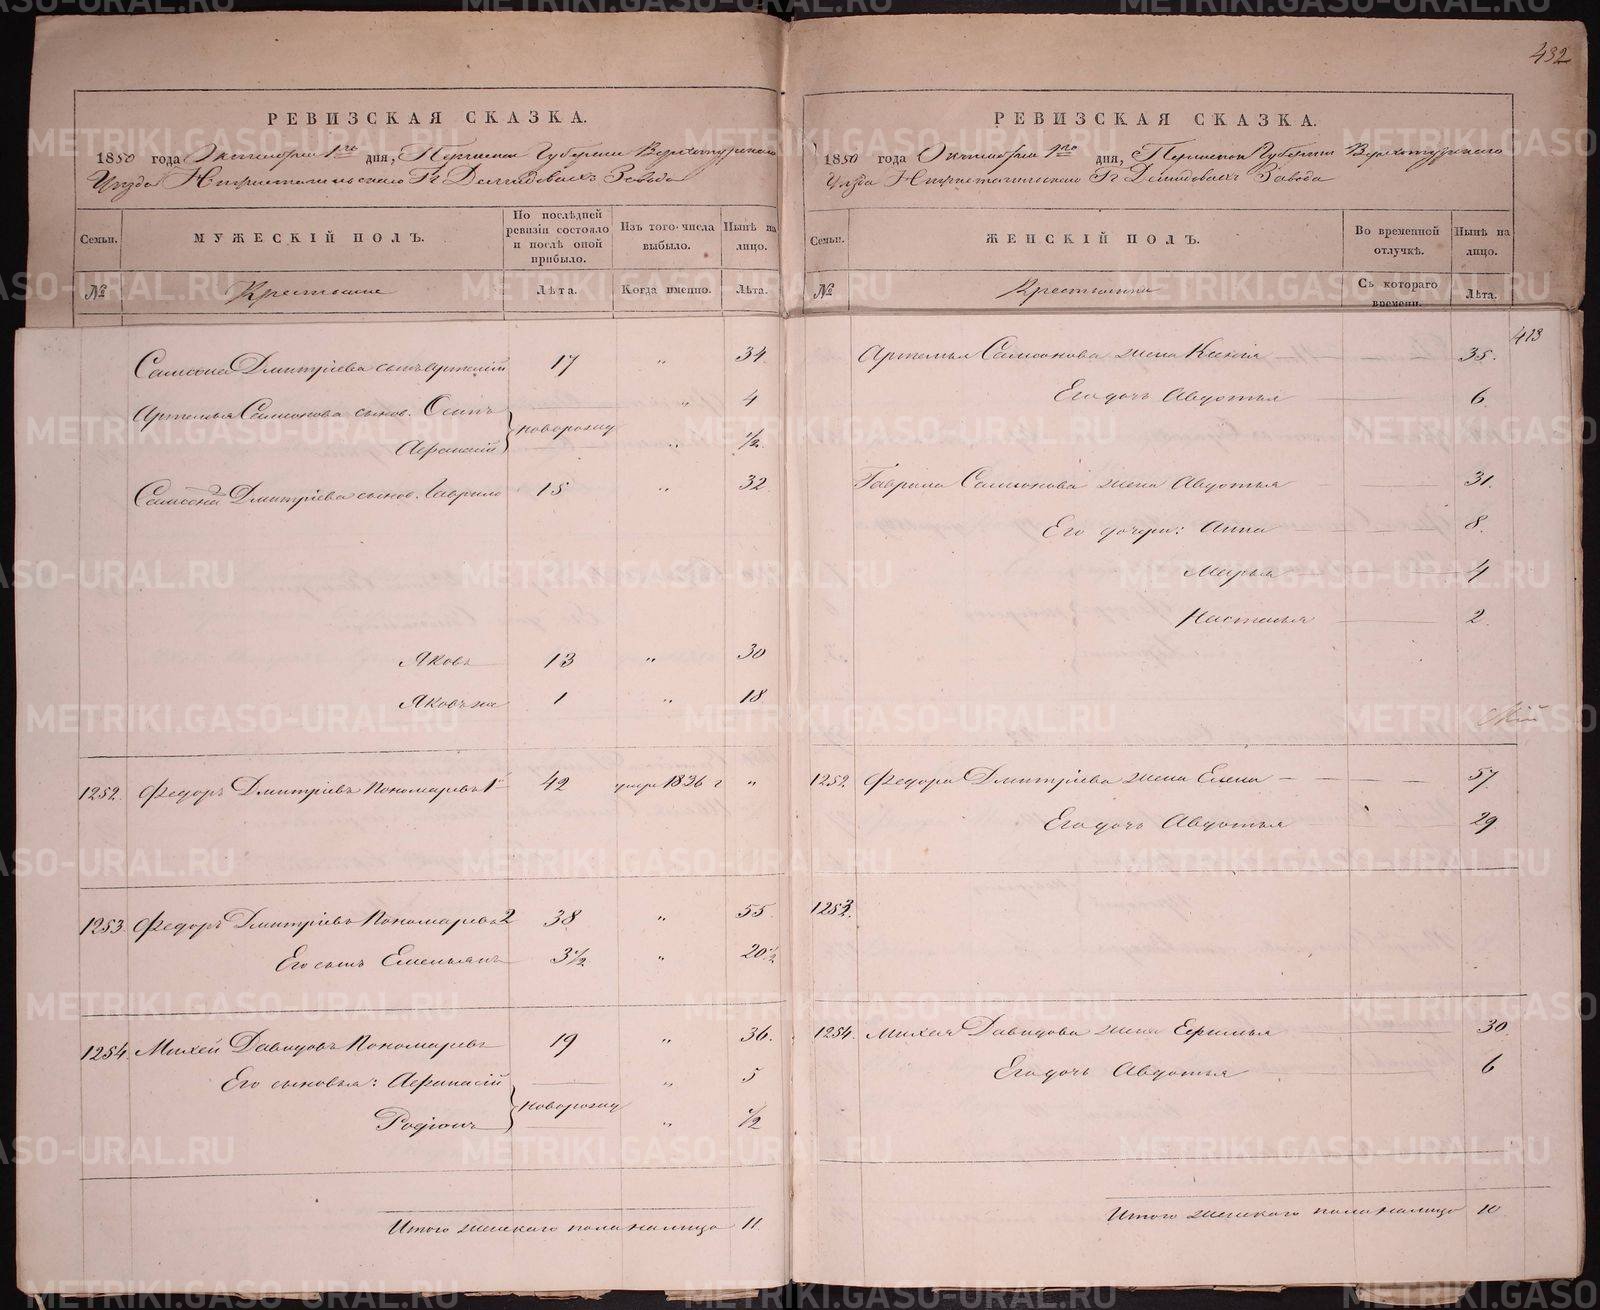 РЕВИЗСКАЯ СКАЗКА.
1850 года Октября 1го дня, Пермской Губерніи Верхотурскаго
Уѣзда Нижнетагильскаго Гг Демидовыхъ Завода
Семьи.
МУЖЕСКІЙ ПОЛЪ.
По послѣдней ревизіи состояло и послѣ оной прибыло.
Изъ того числа выбыло.
Нынѣ на лицо.
№
Крестьяне
Лѣта.
Когда именно.
Лѣта.
Самсона Дмитріева сынъ Артемій 17 " 34
Артемья Самсонова сынов. Осипъ " 4
новорожд
Афанасій " 1/2
Самсона Дмитріева сынов. Гаврило 15 " 32
Яковъ 13 " 30
Яковъ же 1 " 18
1252. Федоръ Дмитріевъ Пономаревъ 1й 42 умеръ 1836 г "
1253. Федоръ Дмитріевъ Пономаревъ 2 38 " 55.
Его сынъ Емельянъ 3 1/2 " 20 1/2
1254. Михей Давыдовъ Пономаревъ 19 " 36.
Его сыновья: Афанасій " 5
новорожд
Родіонъ " 1/2
Итого женскаго пола налицо 11.
432
РЕВИЗСКАЯ СКАЗКА.
1850 года Октября 1го дня, Пермской Губерніи Верхотурскаго
Уѣзда Нижнетагильскаго Гг Демидовыхъ Завода
Семьи.
ЖЕНСКІЙ ПОЛЪ.
Во временной отлучкѣ.
Нынѣ на лицо.
№
Крестьянки
Съ котораго времени.
Лѣта.
413
Артемья Самсонова жена Ксенія 35.
Его дочь Авдотья 6
Гаврила Самсонова жена Авдотья 31.
Его дочери: Анна 8.
Марья 4
Настасья 2.
1252. Федора Дмитріева жена Елена 57.
Его дочь Авдотья 29
1253.
1254. Михея Давыдова жена Ефимья 30.
Его дочь Авдотья 6
Итого женскаго пола налицо 10
METRIKI.GASO-URAL.RU